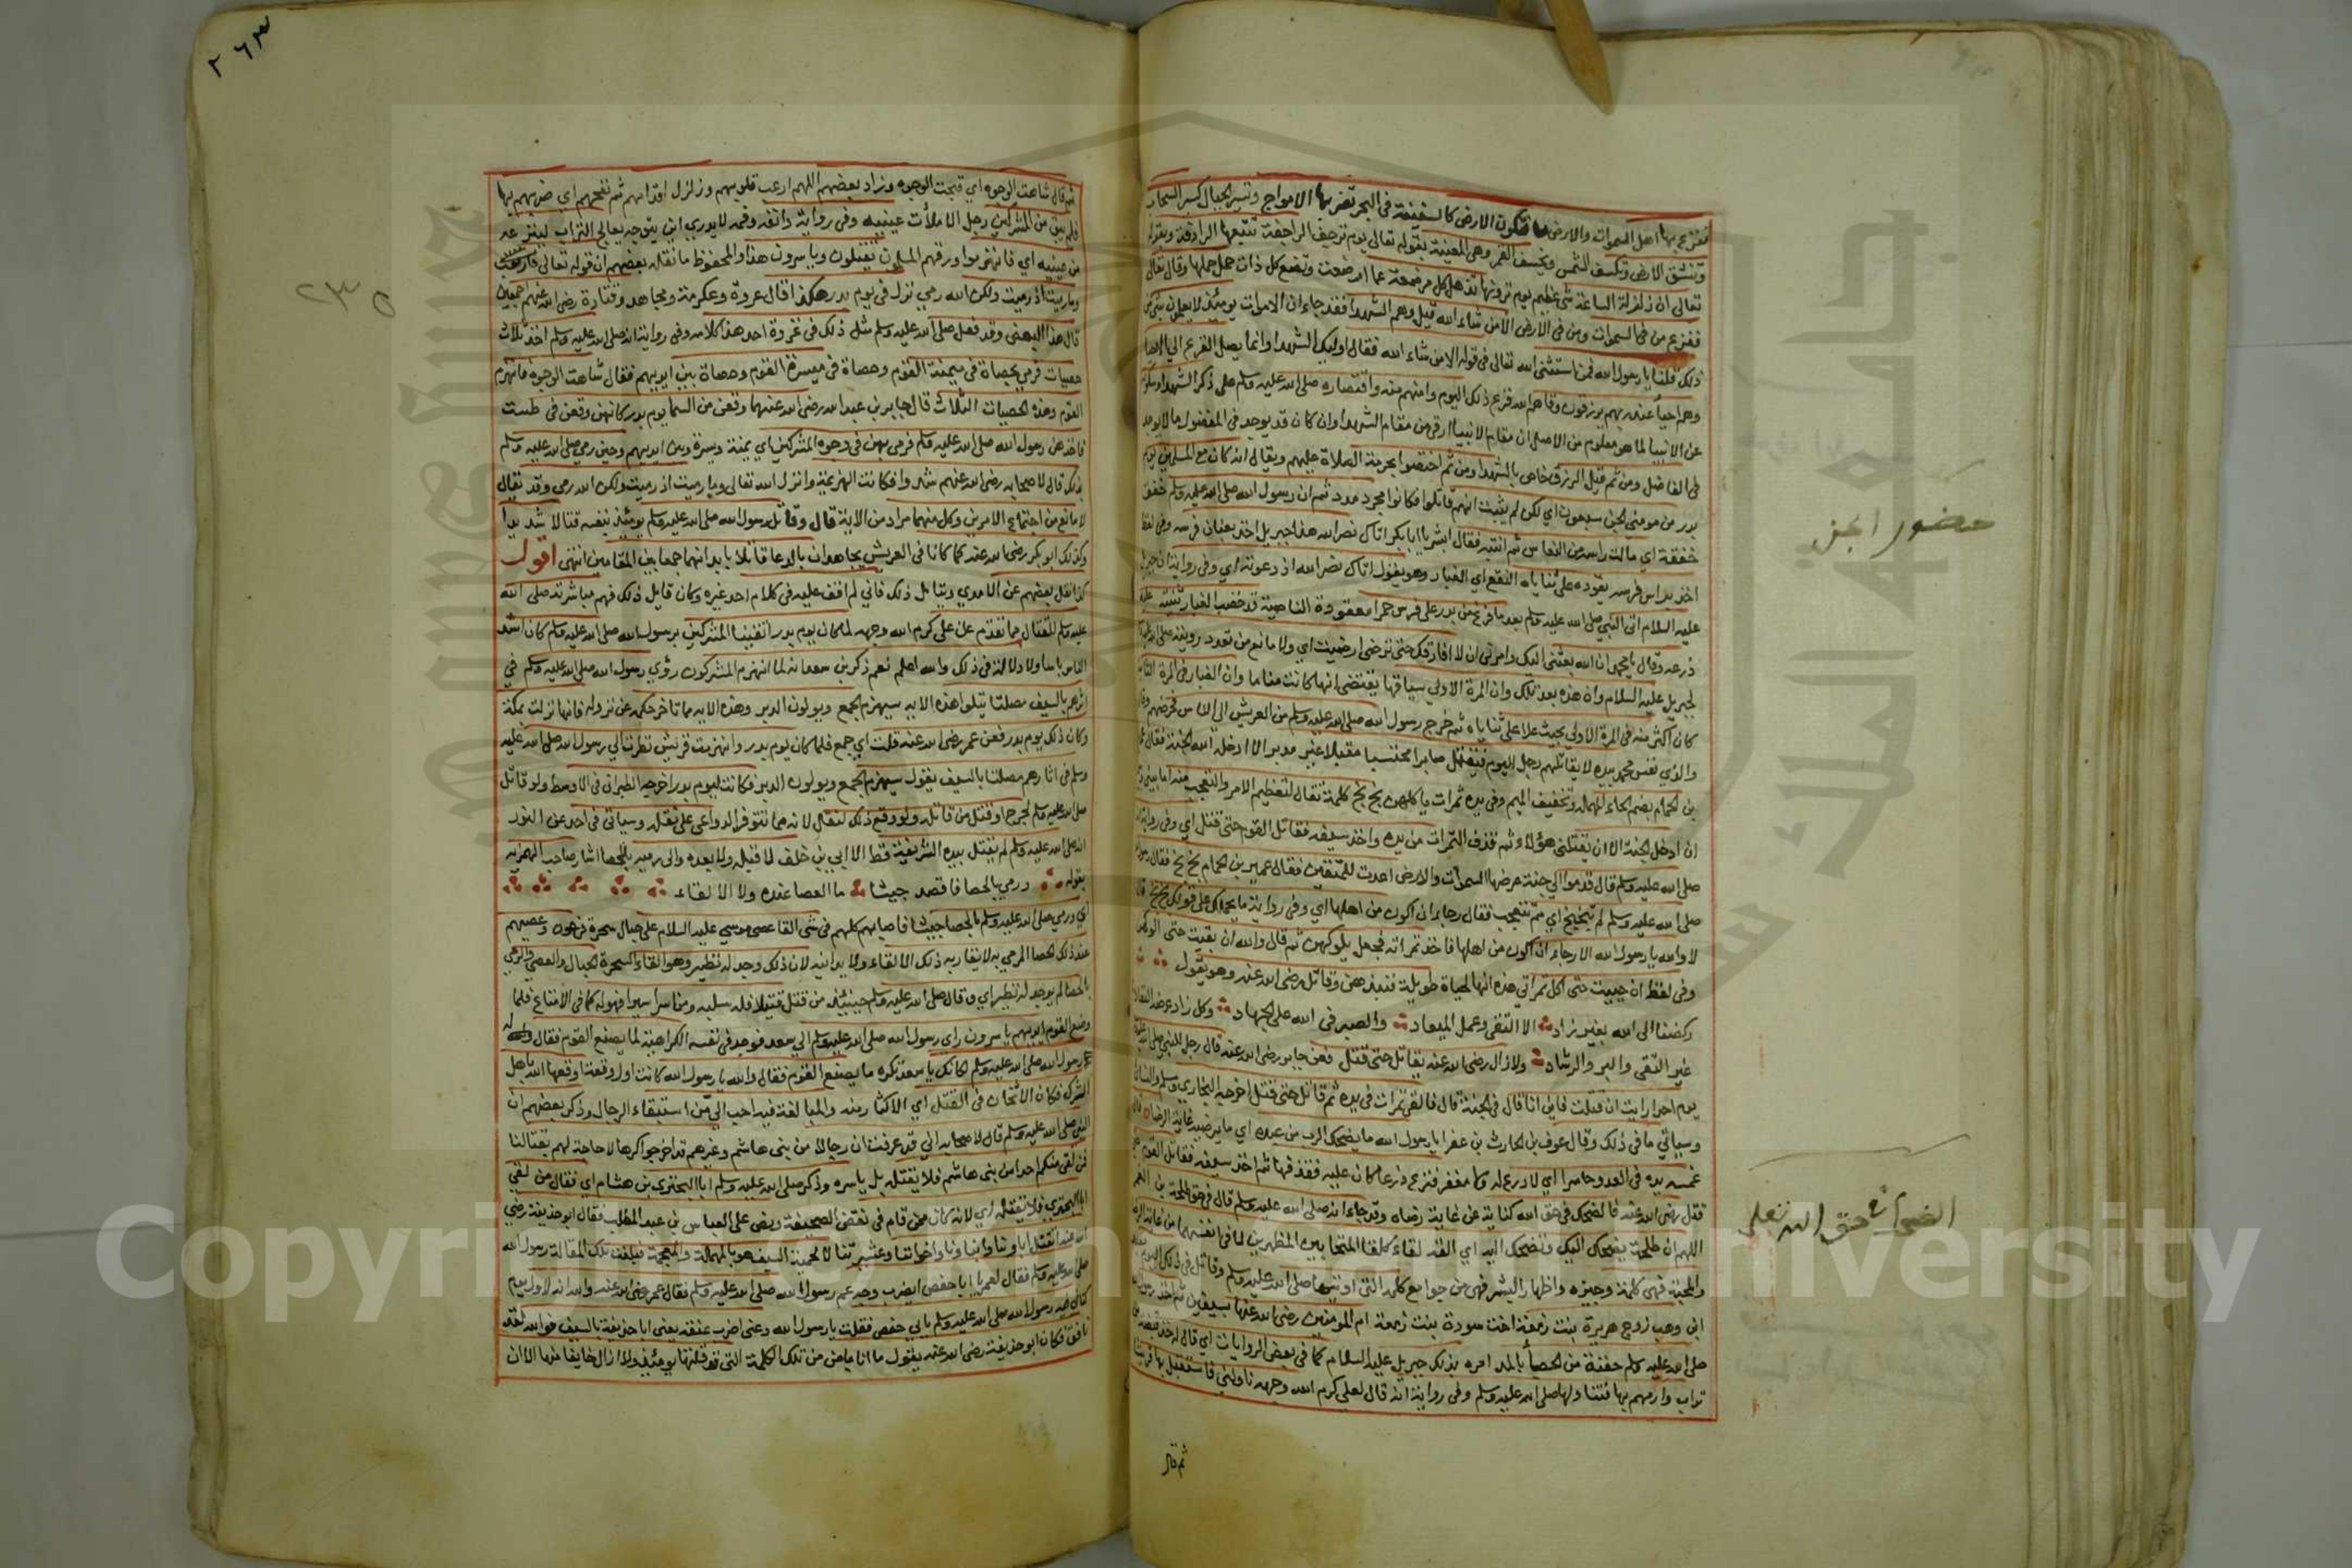 فتفزع بها اهل السموات والارض فتكون الارض كالسفينة في البحر تضربها الامواج وتسير الجبال كسير السحاب
وتنشق الارض وتكسف الشمس ويخسف القمر وهي المعنية بقوله تعالى يوم ترجف الراجفة تتبعها الرادفة وبقوله
تعالى ان زلزلة الساعة شي عظيم يوم ترونها تذهل كل مرضعة عما ارضعت وتضع كل ذات حمل حملها وقال تعالى
ففزع من في السموات ومن في الارض الا من شاء الله قيل وهم الشهدا فقد جاء ان الاموات يومئذ لا يعلمون بشي من
ذلك قلنا يا رسول الله فمن استثنى الله تعالى في قوله الا من شاء الله فقال اوليك الشهدا وانما يصل الفزع الى الاحيا
وهم احيا عند ربهم يرزقون وقاهم الله فزع ذلك اليوم وامنهم منه واقتصاره صلى الله عليه وسلم على ذكر الشهدا وسكوته
عن الانبيا لما هو معلوم من الاصل ان مقام الانبيا ارقى من مقام الشهدا وان كان قد يوجد في المفضول ما لا يوجد
في الفاضل ومن ثم قيل الرزق خاص بالشهدا ومن ثم اختصوا بحرمة الصلاة عليهم ويقال انه كان مع المسلمين يوم
بدر من مومني الجن سبعون اي لكن لم يثبت انهم قاتلوا فكانوا مجرد مدد ثم ان رسول الله صلى الله عليه وسلم خفق
خفقة اي مالت راسه من النعاس ثم انتبه فقال ابشر يا ابا بكر اتاك نصر الله هذا جبريل اخذ بعنان فرسه وفي لفظ
اخذ براس فرسه يقوده على ثناياه النقع اي الغبار وهو يقول اتاك نصر الله اذ دعوته اي وفي رواية ان جبريل
عليه السلام اتى النبي صلى الله عليه وسلم بعد ما فرغ من بدر على فرس حمرا معقودة الناصية قد خضب الغبار ثنيته عليه
درعه وقال يا محمد ان الله بعثني اليك وامرني ان لا افارقك حتى ترضى ارضيت اي ولا مانع من تعدد رويته صلى الله عليه وسلم
لجبريل عليه السلام وان هذه بعد تلك وان المرة الاولى سياقها يقتضي انها كانت مناما وان الغبار في المرة الثانية
كان اكثر منه في المرة الاولى بحيث علا على ثناياه ثم خرج رسول الله صلى الله عليه وسلم من العريش الى الناس فحرضهم وقال
والذي نفس محمد بيده لا يقاتلهم رجل اليوم فيقتل صابرا محتسبا مقبلا غير مدبر الا ادخله الله الجنة فقال عمير
بن الحمام بضم الحاء المهملة وتخفيف الميم وفي يده تمرات ياكلهن بخ بخ كلمة تقال لتعظيم الامر والتعجب منه اما بيني وبين
ان ادخل الجنة الا ان يقتلني هؤلاء ثم قذف التمرات من يده واخذ سيفه فقاتل القوم حتى قتل اي وفي رواية انه
صلى الله عليه وسلم قال قوموا الى جنة عرضها السموات والارض اعدت للمتقين فقال عمير بن الحمام بخ بخ فقال رسول
صلى الله عليه وسلم لم تبخبخ اي مم تتعجب فقال رجاء ان اكون من اهلها اي وفي رواية ما يحملك على قولك بخ بخ قال
لا والله يا رسول الله الا رجاء ان اكون من اهلها فاخذ تمراته فجعل يلوكهن ثم قال والله ان بقيت حتى الوكهن
وفي لفظ ان حييت حتى اكل تمراتي هذه انها لحياة طويلة فنبذهن وقاتل رضي الله عنه وهو يقول
ركضنا الى الله بغير زاد الا التقى وعمل الميعاد والصبر في الله على الجهاد وكل زاد عرضة النفاد
غير التقى والبر والرشاد ولا زال رضي الله عنه يقاتل حتى قتل فعن جابر رضي الله عنه قال رجل للنبي صلى الله عليه وسلم
يوم احد ارايت ان قتلت فاين انا قال في الجنة قال فالقى تمرات في يده ثم قاتل حتى قتل اخرجه البخاري ومسلم والنسائي
وسياتي ما في ذلك وقال عوف بن الحارث بن عفرا يا رسول الله ما يضحك الرب من عبده اي ما يرضيه غاية الرضاء قال
غمسه يده في العدو حاسرا اي لا درع له ولا مغفر فنزع درعا كان عليه فقذفها ثم اخذ سيفه فقاتل القوم حتى
قتل رضي الله عنه فالضحك في حق الله كناية عن غاية رضاه وقد جاء انه صلى الله عليه وسلم قال في حق طلحة بن الغمر
اللهم ان طلحة يضحك اليك وتضحك اليه اي القه لقاء كلقاء المتحابين المظهرين لما في انفسهما من غاية الرضاء
والمحبة فهي كلمة وجيزه واظهار البشر فهي من جوامع كلمه التي اوتيها صلى الله عليه وسلم وقاتل في ذلك اليوم معبد
ابن وهب زوج هريرة بنت زمعة اخت سودة بنت زمعة ام المومنين رضي الله عنها بسيفين ثم اخذ رسول الله
صلى الله عليه وسلم حفنة من الحصا بالمد امره بذلك جبريل عليه السلام كما في بعض الروايات اي قال له خذ قبضة من
تراب وارمهم بها فتناولها صلى الله عليه وسلم وفي رواية انه قال لعلي كرم الله وجهه ناولني فاستقبل بها قريشا
ثم قال
حضور الجن
الضحك في حق الله تعالى
٢٦٣
٢٣٥
ثم قال شاهت الوجوه اي قبحت الوجوه وزاد بعضهم اللهم ارعب قلوبهم وزلزل اقدامهم ثم نفحهم اي ضربهم بها
فلم يبق من المشركين رجل الا ملأت عينيه وفي رواية وانفه وفمه لا يدري اين يتوجه يعالج التراب لينزعه
من عينيه اي فانهزموا وردفهم المسلمون يقتلون وياسرون هذا والمحفوظ ما نقله بعضهم ان قوله تعالى
وما رميت اذ رميت ولكن الله رمى نزل في يوم بدر هكذا قال عروة وعكرمة ومجاهد وقتادة رضي الله عنهم اجمعين
قال هذا البعض وقد فعل صلى الله عليه وسلم مثل ذلك في غزوة احد هذا كلامه وفي رواية انه صلى الله عليه وسلم اخذ ثلاث
حصيات فرمى بحصاة في ميمنة القوم وحصاة في ميسرة القوم وحصاة بين ايديهم فقال شاهت الوجوه فانهزم
القوم وهذه الحصيات الثلاث قال جابر بن عبد الله رضي الله عنهما وقعن من السما يوم بدر كانهن وقعن في طست
فاخذهن رسول الله صلى الله عليه وسلم فرمى بهن في وجوه المشركين اي يمنة ويسرة وبين ايديهم وحين رمى صلى الله عليه وسلم
بذلك قال لاصحابه رضي الله عنهم شدوا فكانت الهزيمة وانزل الله تعالى وما رميت اذ رميت ولكن الله رمى وقد يقال
لا مانع من اجتماع الامرين وكل منهما مراد من الاية قال وقاتل رسول الله صلى الله عليه وسلم يومئذ بنفسه قتالا شديدا
وكذلك ابو بكر رضي الله عنه كما كانا في العريش يجاهدان بالدعا قاتلا بابدانهما جمعا بين المقامين انتهى اقول
كذا نقل بعضهم عن الاموي ويتامل ذلك فاني لم اقف عليه في كلام احد غيره وكان قايل ذلك فهم مباشرته صلى الله
عليه وسلم للقتال مما تقدم عن علي كرم الله وجهه لما كان يوم بدر اتقينا المشركين برسول الله صلى الله عليه وسلم كان اشد
الناس باسا ولا دلالة في ذلك والله اعلم نعم ذكر بن سعد انه لما انهزم المشركون رؤي رسول الله صلى الله عليه وسلم في
اثرهم بالسيف مصلتا يتلوا هذه الاية سيهزم الجمع ويولون الدبر وهذه الاية مما تاخر حكمه عن نزوله فانها نزلت بمكة
وكان ذلك يوم بدر فعن عمر رضي الله عنه قلت اي جمع فلما كان يوم بدر وانهزمت قريش نظرت الى رسول الله صلى الله عليه
وسلم في اثارهم مصلتا بالسيف يقول سيهزم الجمع ويولون الدبر فكانت ليوم بدر اخرجه الطبراني في الاوسط ولو قاتل
صلى الله عليه وسلم لجرح او قتل من قاتله ولو وقع ذلك لنقل لانه مما تتوفر الدواعي على نقله وسياتي في احد عن النور
انه صلى الله عليه وسلم لم يقتل بيده الشريفة قط الا ابي بن خلف لا قبله ولا بعده والى رميه بالحصا اشار صاحب الهمزيه
بقوله ورمى بالحصا فاقصد جيشا ما العصا عنده ولا الالقاء
اي ورمى صلى الله عليه وسلم بالحصا جيشا فاصابهم كلهم في شي القا عصى موسى عليه السلام على حبال سحرة فرعون وعصيهم
عند ذلك الحصا المرمي به لا يقاربه ذلك الالقاء ولا يدانيه لان ذلك وجد له نظير وهو القاء السحرة الحبال والعصي والرمي
بالحصا لم يوجد له نظير اي وقال صلى الله عليه وسلم حينئذ من قتل قتيلا فله سلبه ومن اسر اسيرا فهو له كما في الامتاع فلما
وضع القوم ايديهم ياسرون راي رسول الله صلى الله عليه وسلم الى سعد فوجد في نفسه الكراهية لما يصنع القوم فقال له
رسول الله صلى الله عليه وسلم لكانك يا سعد تكره ما يصنع القوم فقال والله يا رسول الله كانت اول وقعة اوقعها الله باهل
الشرك فكان الاثخان في القتل اي الاكثار منه والمبالغة فيه احب الي من استبقاء الرجال وذكر بعضهم ان
النبي صلى الله عليه وسلم قال لاصحابه اني قد عرفت ان رجالا من بني هاشم وغيرهم قد اخرجوا كرها لا حاجة لهم بقتالنا
فمن لقي منكم احدا من بني هاشم فلا يقتله بل ياسره وذكر صلى الله عليه وسلم ابا البختري بن هشام اي فقال من لقي
ابا البختري فلا يقتله اي لانه كان ممن قام في نقض الصحيفة ونص على العباس بن عبد المطلب فقال ابو حذيفة رضي
الله عنه انقتل اباونا وابناونا واخواننا وعشيرتنا لالحمنه السيف هو بالمهملة والمعجمة فبلغت تلك المقالة رسول الله
صلى الله عليه وسلم فقال لعمر يا ابا حفص ايضرب وجه عم رسول الله صلى الله عليه وسلم فقال عمر رضي الله عنه والله انه لاول يوم
كناني فيه رسول الله صلى الله عليه وسلم بابي حفص فقلت يا رسول الله دعني اضرب عنقه يعني ابا حذيفة بالسيف فوالله لقد
نافق فكان ابو حذيفة رضي الله عنه يقول ما انا بامن من تلك الكلمة التي قد قلتها يومئذ ولا ازال خايفا منها الا ان
Copyright © University